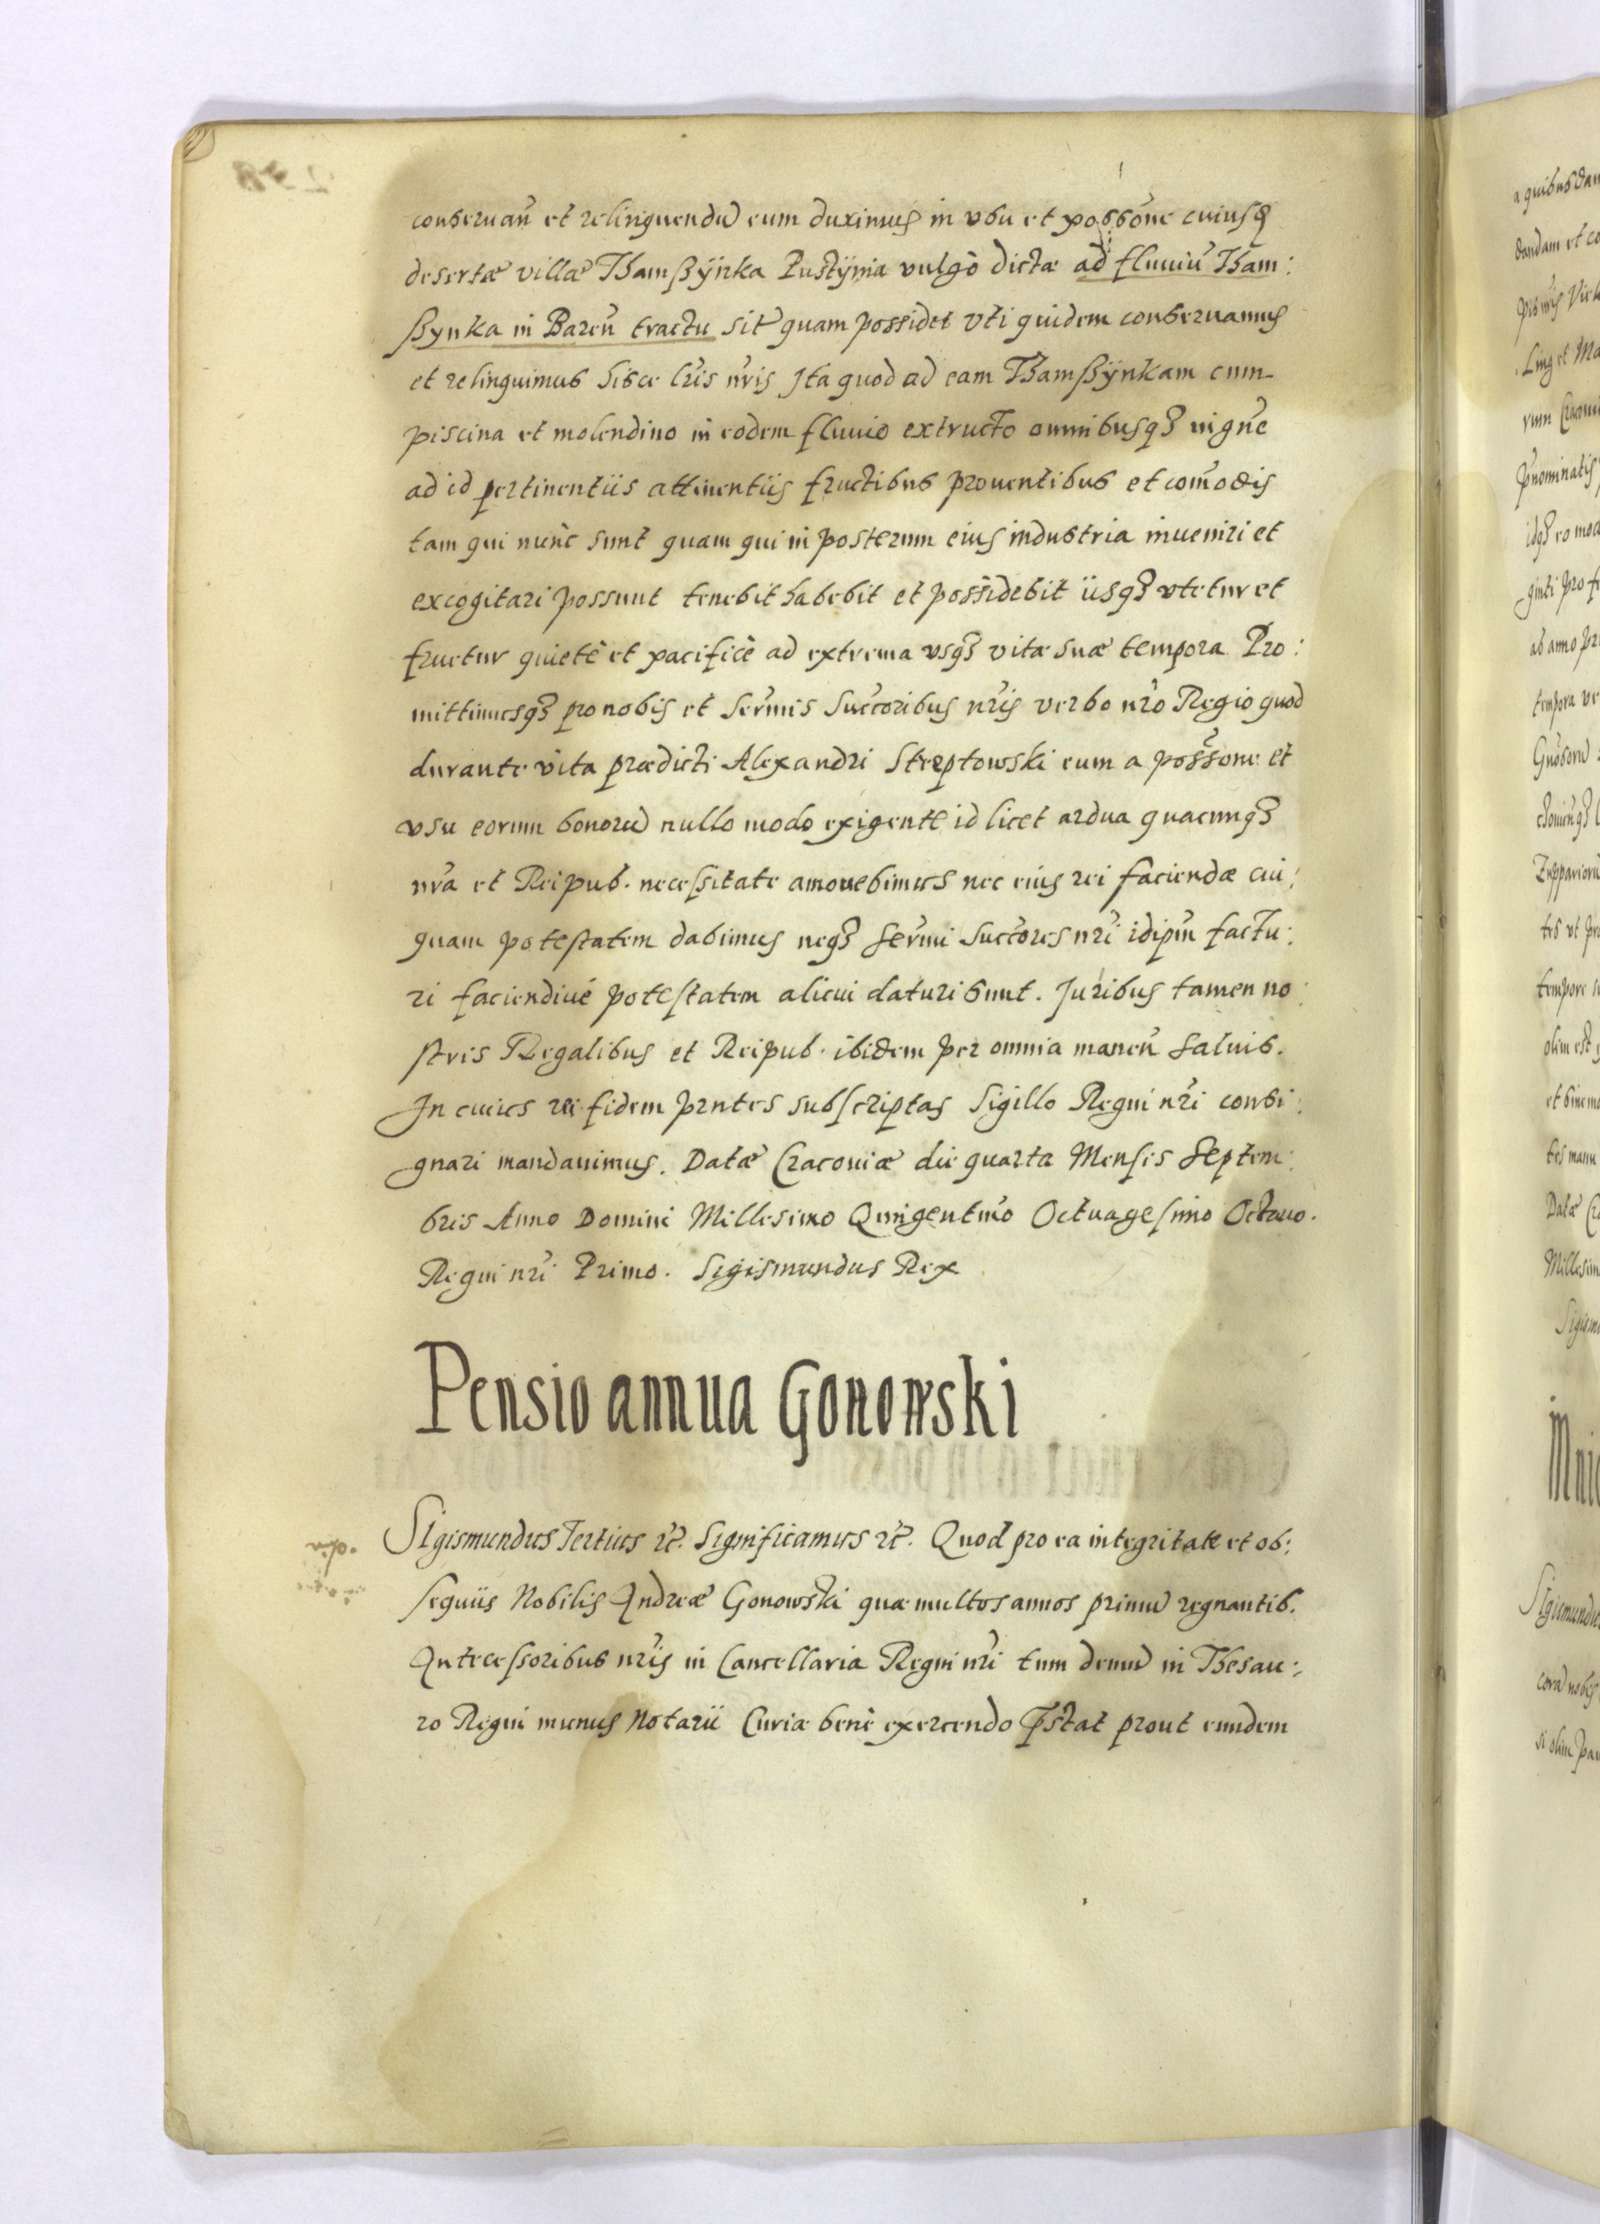 conseruan̄ et relinquendū eum duximus in vsu et possōne cuiusd̄
desertæ villæ Thamssÿnka Pustÿnia vulgò dictæ ad fluuiū Tham:
ssynka in Baren̄ tractu sitæ quam possidet vti quidem conseruamus
et relinquimus hisce lr̄is nr̄is Ita quod ad eam Thamssÿnkam cum
piscina et molendino in eodem fluuio extructo omnibusqȝ in gn̄e
ad id pertinentiis attinentiis fructibus prouentibus et com̄odis
tam qui nunc sunt quam qui in posterum eius industria inueniri et
excogitari possunt tenebit habebit et possidebit iisqȝ vtetur et
fruetur quietè et pacificè ad extrema vsqȝ vitæ suæ tempora Pro:
mittimusqȝ pro nobis et Ser̄mis Succ̄oribus nr̄is verbo nr̄o Regio quod
durante vita prædicti Alexandri Streptowski eum a poss̄one et
vsu eorum bonorū nullo modo exigente id licet ardua quacunqȝ
nr̄a et Reipub. necessitate amouebimus nec eius rei faciendæ cui:
quam potestatem dabimus neqȝ Ser̄mi Succ̄ores nr̄i idipm̄ factu:
ri faciendiué potestatem alicui daturi sunt. Juribus tamen no:
stris Regalibus et Reipub. ibidem per omnia manen̄ saluis.
In cuius rei fidem pr̄ntes subscriptas Sigillo Regni nr̄i consi:
gnari mandauimus. Datæ Cracouiæ die quarta Mensis Septem:
bris Anno Domini Millesimo Quingentm̄o Octuagesimo Octauo.
Regni nr̄i Primo. Sigismundus Rex
Pensio annua Gonowski
Sigismundus Tertius etc̄. Significamus etc̄. Quod pro ea integritate et ob:
sequiis Nobilis Andreæ Gonowski quæ multos annos primū regnantib.
Antecessoribus nr̄is in Cancellaria Regni nr̄i tum demū in Thesau:
ro Regni munus Notarii Curiæ benè exercendo pr̄stat prout eundem